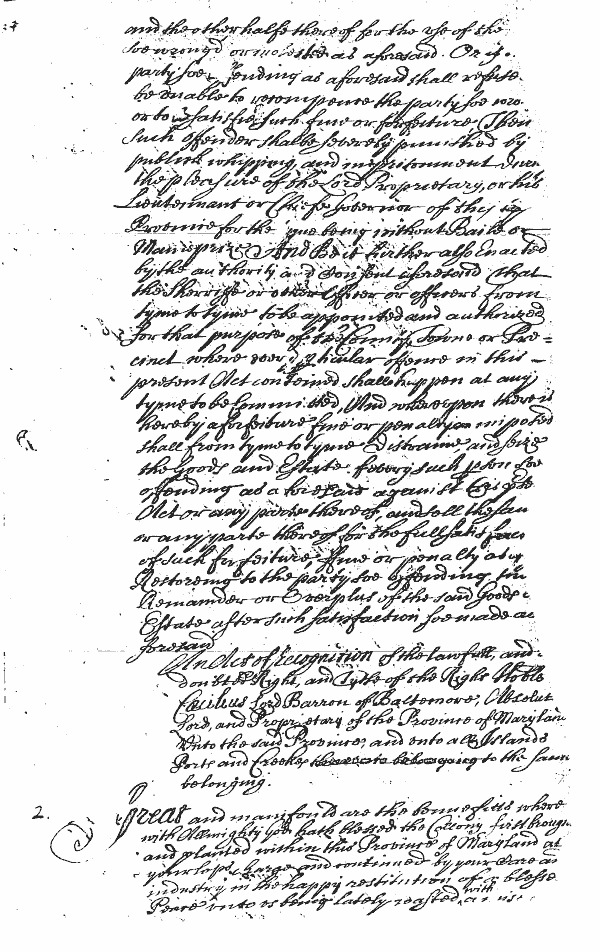 and the other halfe thereof for the vse of the
soe wrongd or molested as aforesaid. Or if
party soe fending as aforesaid shall refuse
be vnable to recompence the party soe
or to satisfie such fine or forfeiture Then
such offender shalbe severely punished by
publick whipping, and imprisonment
the pleasure of the Lord Proprietary, or his
Lieutennant or Chiefe Governor of this
Province for the being without Baile or
Mainprize And Be it further also Enacted
by the authority and Consent aforesaid that
the Sherriffe or other Officer or officers from
tyme to tyme to be appointed and authorized
for that purpose of the County Towne or Pre=
cinct where every particular offence in this
present Act conteined shall happen at any
tyme to be Committed, And whereupon there is
hereby a forfeiture fine or penalty imposed
shall from tyme to tyme Distraine, and seize
the Goods and Estate of every such pson soe
offending as aforesaid against this psnte
Act or any parte thereof, and sell the
or any parte thereof for the full
of such forfeiture fine or penalty
Restoreing to the party soe offending,
Remainder or Overplus of the said Goods
Estate after such satisfaction soe made
foresaid
An Act of recognition of the lawfull, and
doubted Right, and Tytle of the Right Noble
Cæcilius Lord Barron of Baltemore, Absolut
Lord, and Proprietary of the Province of Marylan
Vnto the said Province, and vnto all Islands
Ports and Creekes to the same
belonging.
2. Great and manifould are the bennefitts where
with Allmighty God hath blessed this Collony, first
and planted within this Province of Maryland at
your charge and continued by your Care
industry in the happy restitution of a blesse
Peace vnto vs being lately wasted with